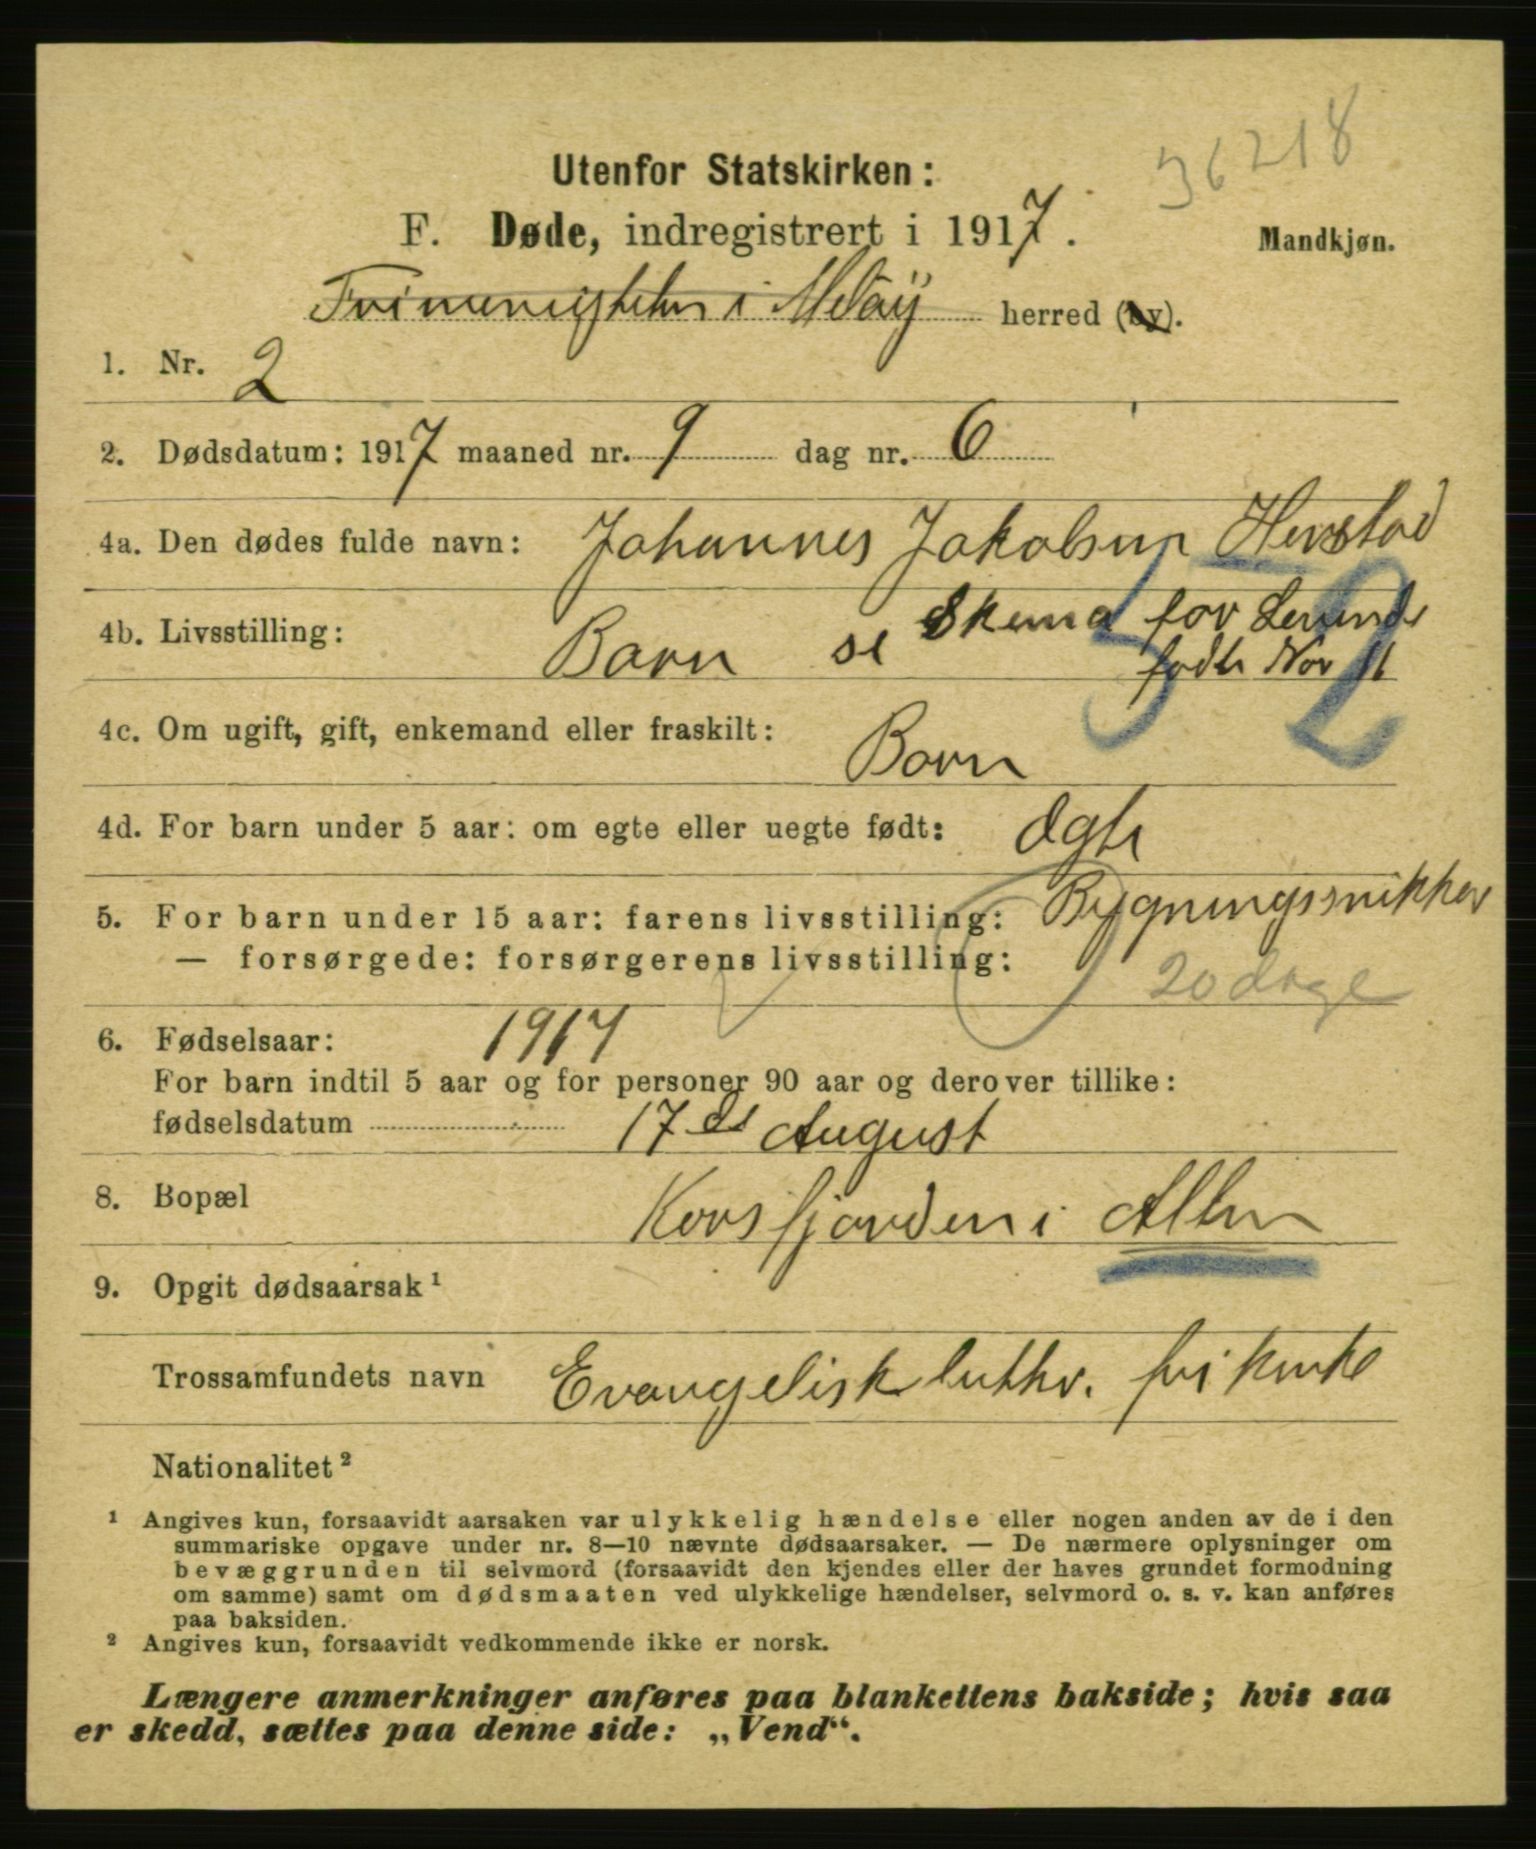 36218
Utenfor Statskirken:
F. Døde, indregistrert i 1917.
Mandkjøn.
Frimenigheten i Målsøy herred (by).
1. Nr. 2
2. Dødsdatum: 1917 maaned nr. 9 dag nr. 6
4a. Den dødes fulde navn: Johannes Jakobsen
4b. Livsstilling: Barn se Skema for
fødte Nov 11
52
4c. Om ugift, gift, enkemand eller fraskilt: Barn
4d. For barn under 5 aar: om egte eller uegte født: Ægte
5. For barn under 15 aar: farens livsstilling: Bygningssnikker
— forsørgede: forsørgerens livsstilling: 20 dage
6. Fødselsaar: 1917
For barn indtil 5 aar og for personer 90 aar og derover tillike:
fødselsdatum 17de August
8. Bopæl Korsfjorden i Alten
9. Opgit dødsaarsak¹
Trossamfundets navn Evangelisk luthr. frikirke
Nationalitet²
¹ Angives kun, forsaavidt aarsaken var ulykkelig hændelse eller nogen anden av de i den
summariske opgave under nr. 8—10 nævnte dødsaarsaker. — De nærmere oplysninger om
bevæggrunden til selvmord (forsaavidt den kjendes eller der haves grundet formodning
om samme) samt om dødsmaaten ved ulykkelige hændelser, selvmord o. s. v. kan anføres
paa baksiden.
² Angives kun, forsaavidt vedkommende ikke er norsk.
Længere anmerkninger anføres paa blankettens bakside; hvis saa
er skedd, sættes paa denne side: „Vend“.